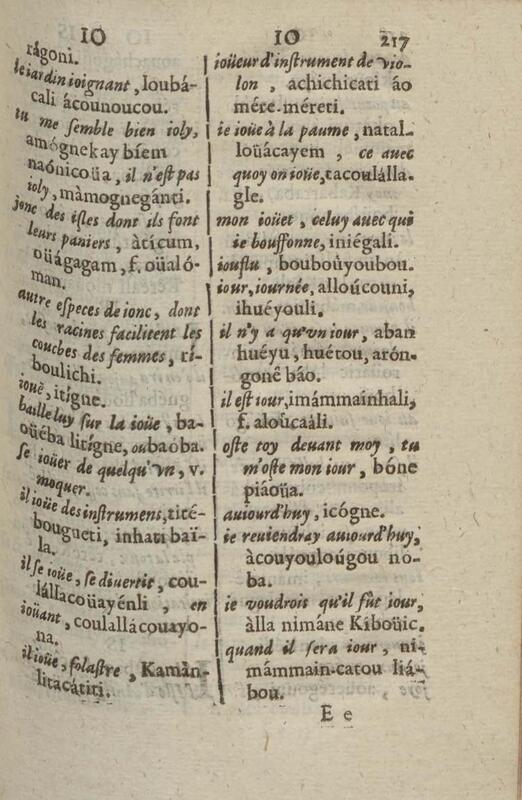 IO
IO
217
rágoni.
le iardin ioignant, Ioubá-
cali ácounoucou.
tu me ſemble bien ioly,
amógnekay bíem
naónicoüa, il n'eſt pas
ioly, màmognegánti.
jonc des iſles dont ils font
leurs paniers, àtícum,
oüágagam, f. oüaló-
man.
autre eſpeces de ionc, dont
les racines facilitent les
couches des femmes, ri-
boulichi.
iouë, itígne.
baille luy ſur la ioüe, ba-
oüéba litígne, ou baòba.
ſe ioüer de quelqu'vn, v.
moquer.
il ioüe des inſtrumens, tité-
bougueti, inhati baï-
la.
il ſe ioüe, ſe diuertit, cou-
lállacoüayénli, en
ioüant, coulallácouayo-
na.
il ioüe, folaſtre, Kamàn-
litacátiti.
ioüeur d'inſtrument de vio-
lon, achichicati áo
mére-méreti.
ie ioüe à la paume, natal-
loüácayem, ce auec
quoy on ioüe, tacoulálla-
gle.
mon ioüet, celuy auec qui
ie bouffonne, iniégali.
iouflu, bouboùyoubou.
iour, iournée, alloúcouni,
ihuéyouli.
il n'y a qu'vn iour, aban
huéyu, huétou, arón-
gonê báo.
il eſt iour, imámmainhali,
f. aloúcaáli.
oſte toy deuant moy, tu
m'oſte mon iour, bóne
piáoüa.
auiourd'huy, icógne.
ie reuiendray auiourd'huy,
àcouyouloúgou no-
ba.
ie voudroit qu'il fût iour,
àlla nimáne Kiboüic.
quand il ſera iour, ni-
mámmain-catou liá-
bou.
E e